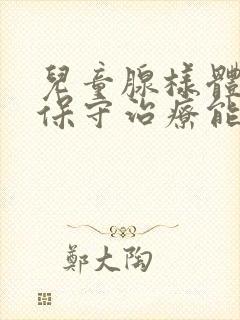 兒童腺樣體
保守治療能
鄭大陶